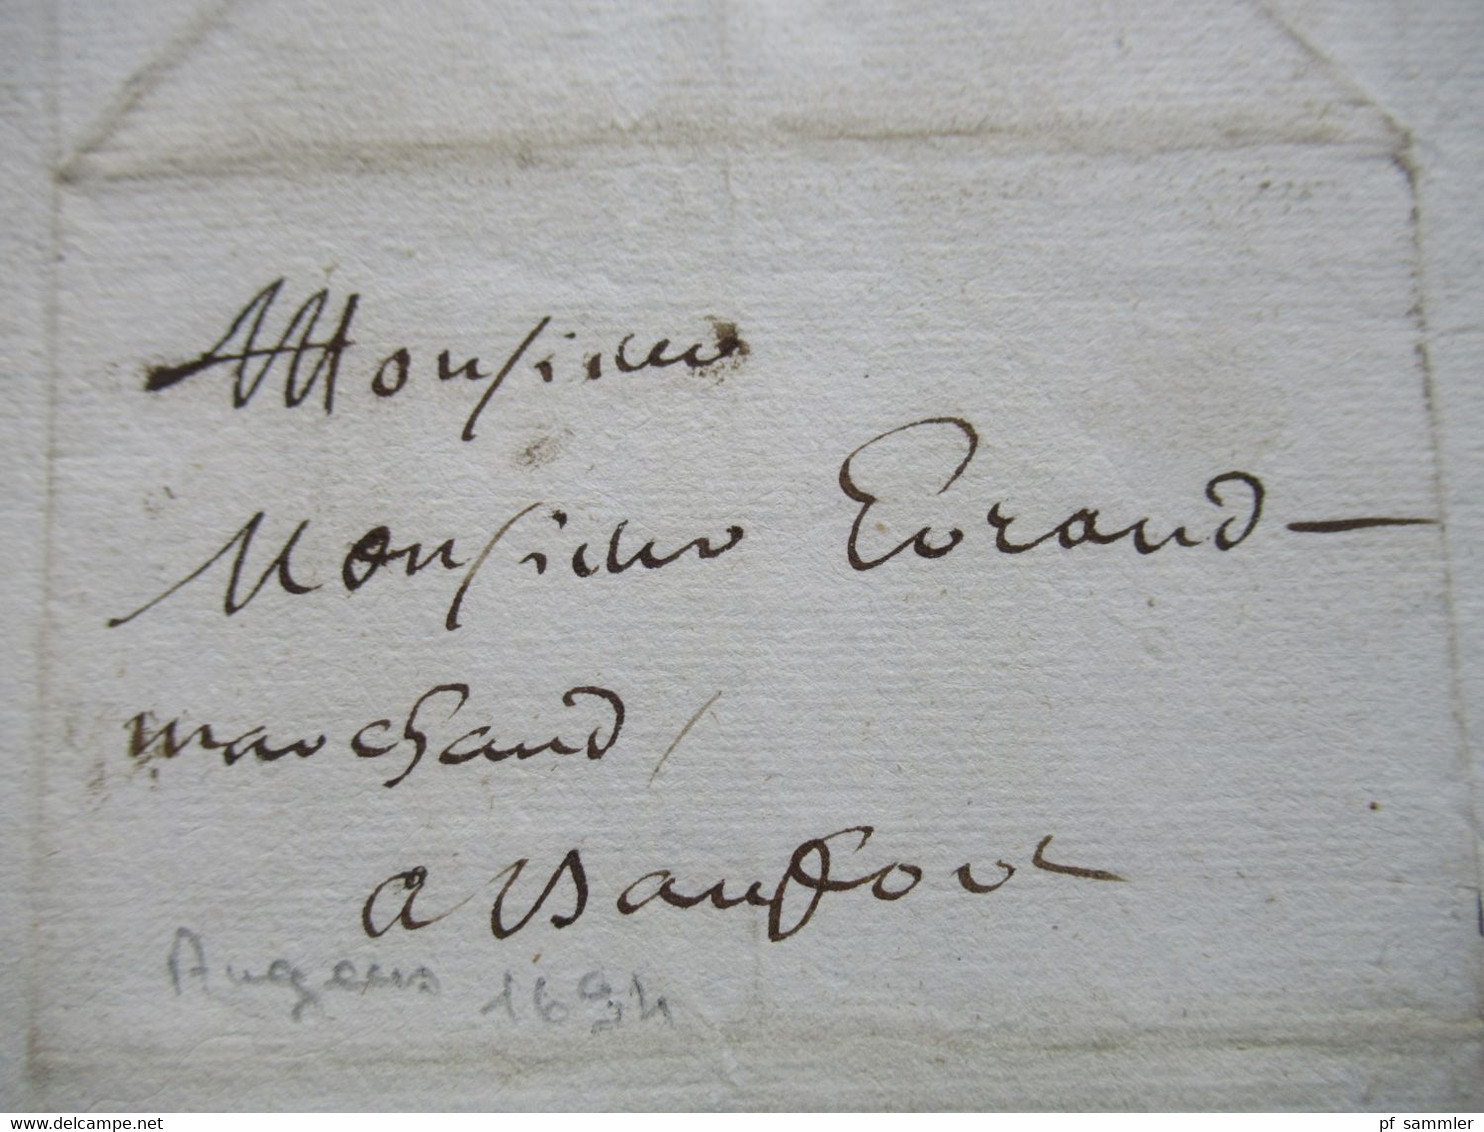 Monsieur
Monsieur Evrand
marchand
a Bauffort
Angers 1694
delcampe.net
pf_sammler